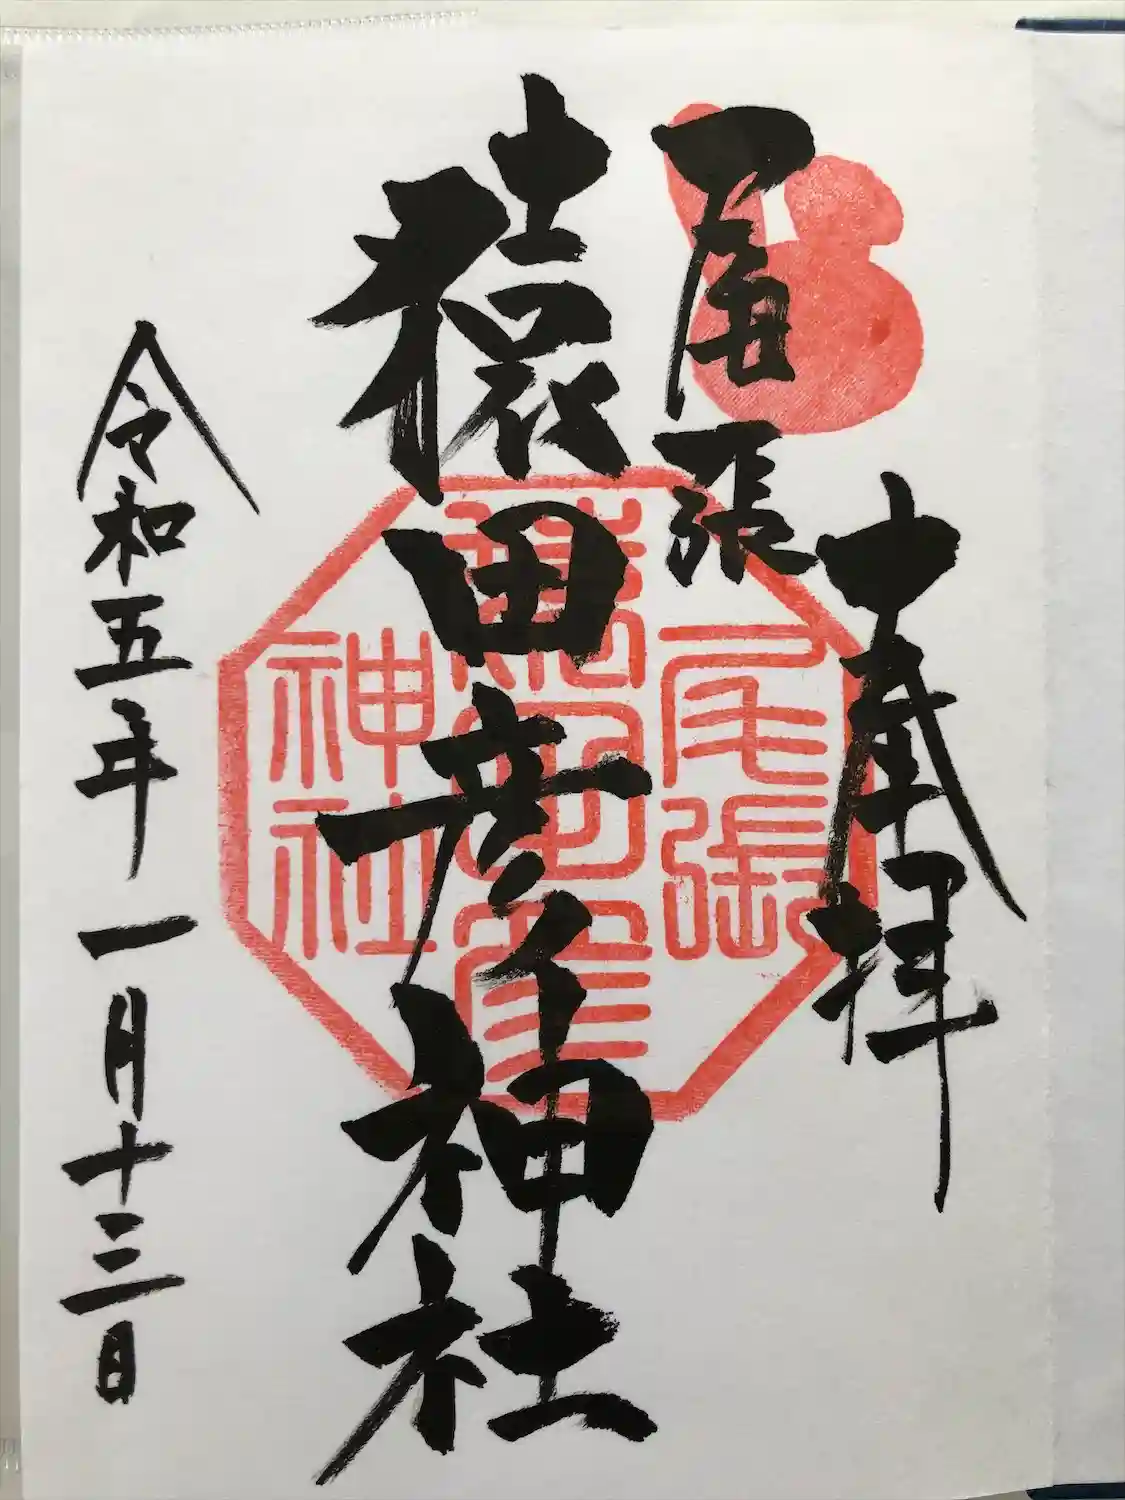 奉拝
尾張
猿田彦神社
令和五年一月十三日
尾張
神社